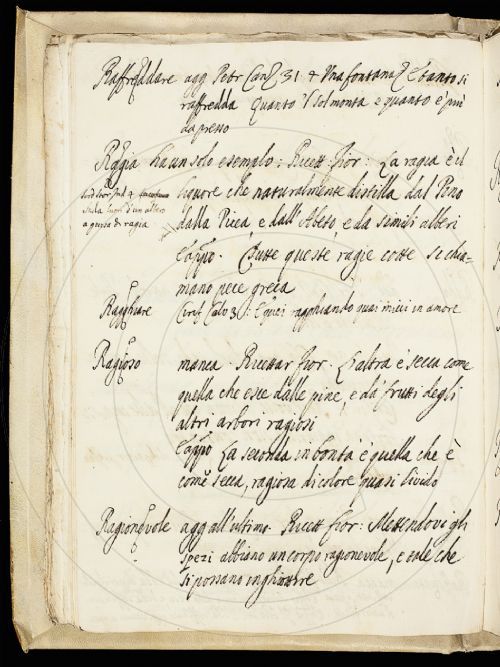 Raffreddare agg. Petr Canz 31 + Una fontana Et tanto si
raffredda Quanto 'l sol monta e quanto è più
da presso
Ragia ha un solo esempio: Ricett. fior: La ragia è il
liquore che naturalmente distilla dal Pino
dalla Picea e dall'Abeto e da simili alberi
stilla fuori d'un albero
a guisa di ragia
E appo. Tutte queste ragie cotte si chia-
mano pece greca
Ragghiare Ciriff Calv 3: E quei ragghiando quasi mici in amore
Ragioso manca. Ricettar fior. L'altra è secca come
quella che esce dalle pine, e da' frutti degli
altri arbori ragiosi
E appo La seconda in bontà è quella che è
come secca, ragiosa di colore quasi livido
Ragionevole agg all'ultimo. Ricett fior: Mettendovi gli
spezi abbiano un corpo ragionevole, e tale che
si possano inghiottire